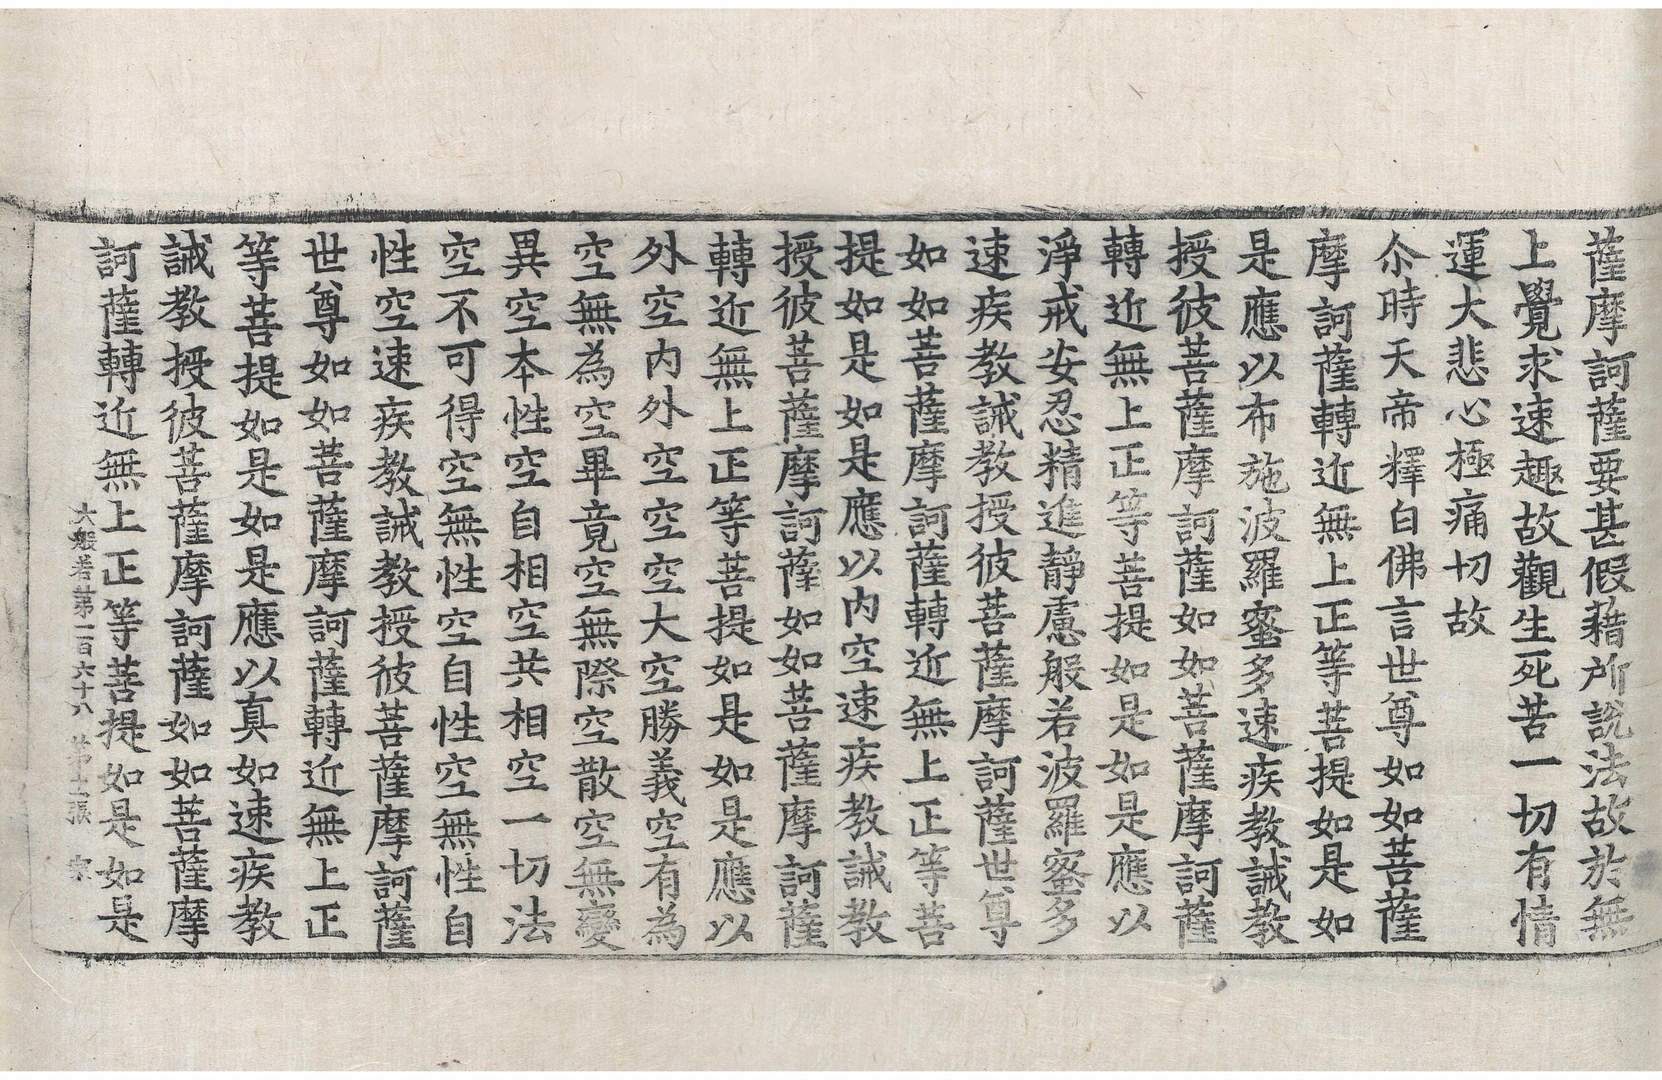 薩摩訶薩要甚假藉所說法故於無
上覺求速趣故觀生死苦一切有情
運大悲心極痛切故
尒時天帝釋白佛言世尊如如菩薩
摩訶薩轉近無上正等菩提如是如
是應以布施波羅蜜多速疾教誡教
授彼菩薩摩訶薩如如菩薩摩訶薩
轉近無上正等菩提如是如是應以
淨戒安忍精進靜慮般若波羅蜜多
速疾教誡教授彼菩薩摩訶薩世尊
如如菩薩摩訶薩轉近無上正等菩
提如是如是應以內空速疾教誡教
授彼菩薩摩訶薩如如菩薩摩訶薩
轉近無上正等菩提如是如是應以
外空內外空空空大空勝義空有為
空無為空畢竟空無際空散空無變
異空本性空自相空共相空一切法
空不可得空無性空自性空無性自
性空速疾教誡教授彼菩薩摩訶薩
世尊如如菩薩摩訶薩轉近無上正
等菩提如是如是應以真如速疾教
誡教授彼菩薩摩訶薩如如菩薩摩
訶薩轉近無上正等菩提如是如是
大般若第一百六十八 第 張